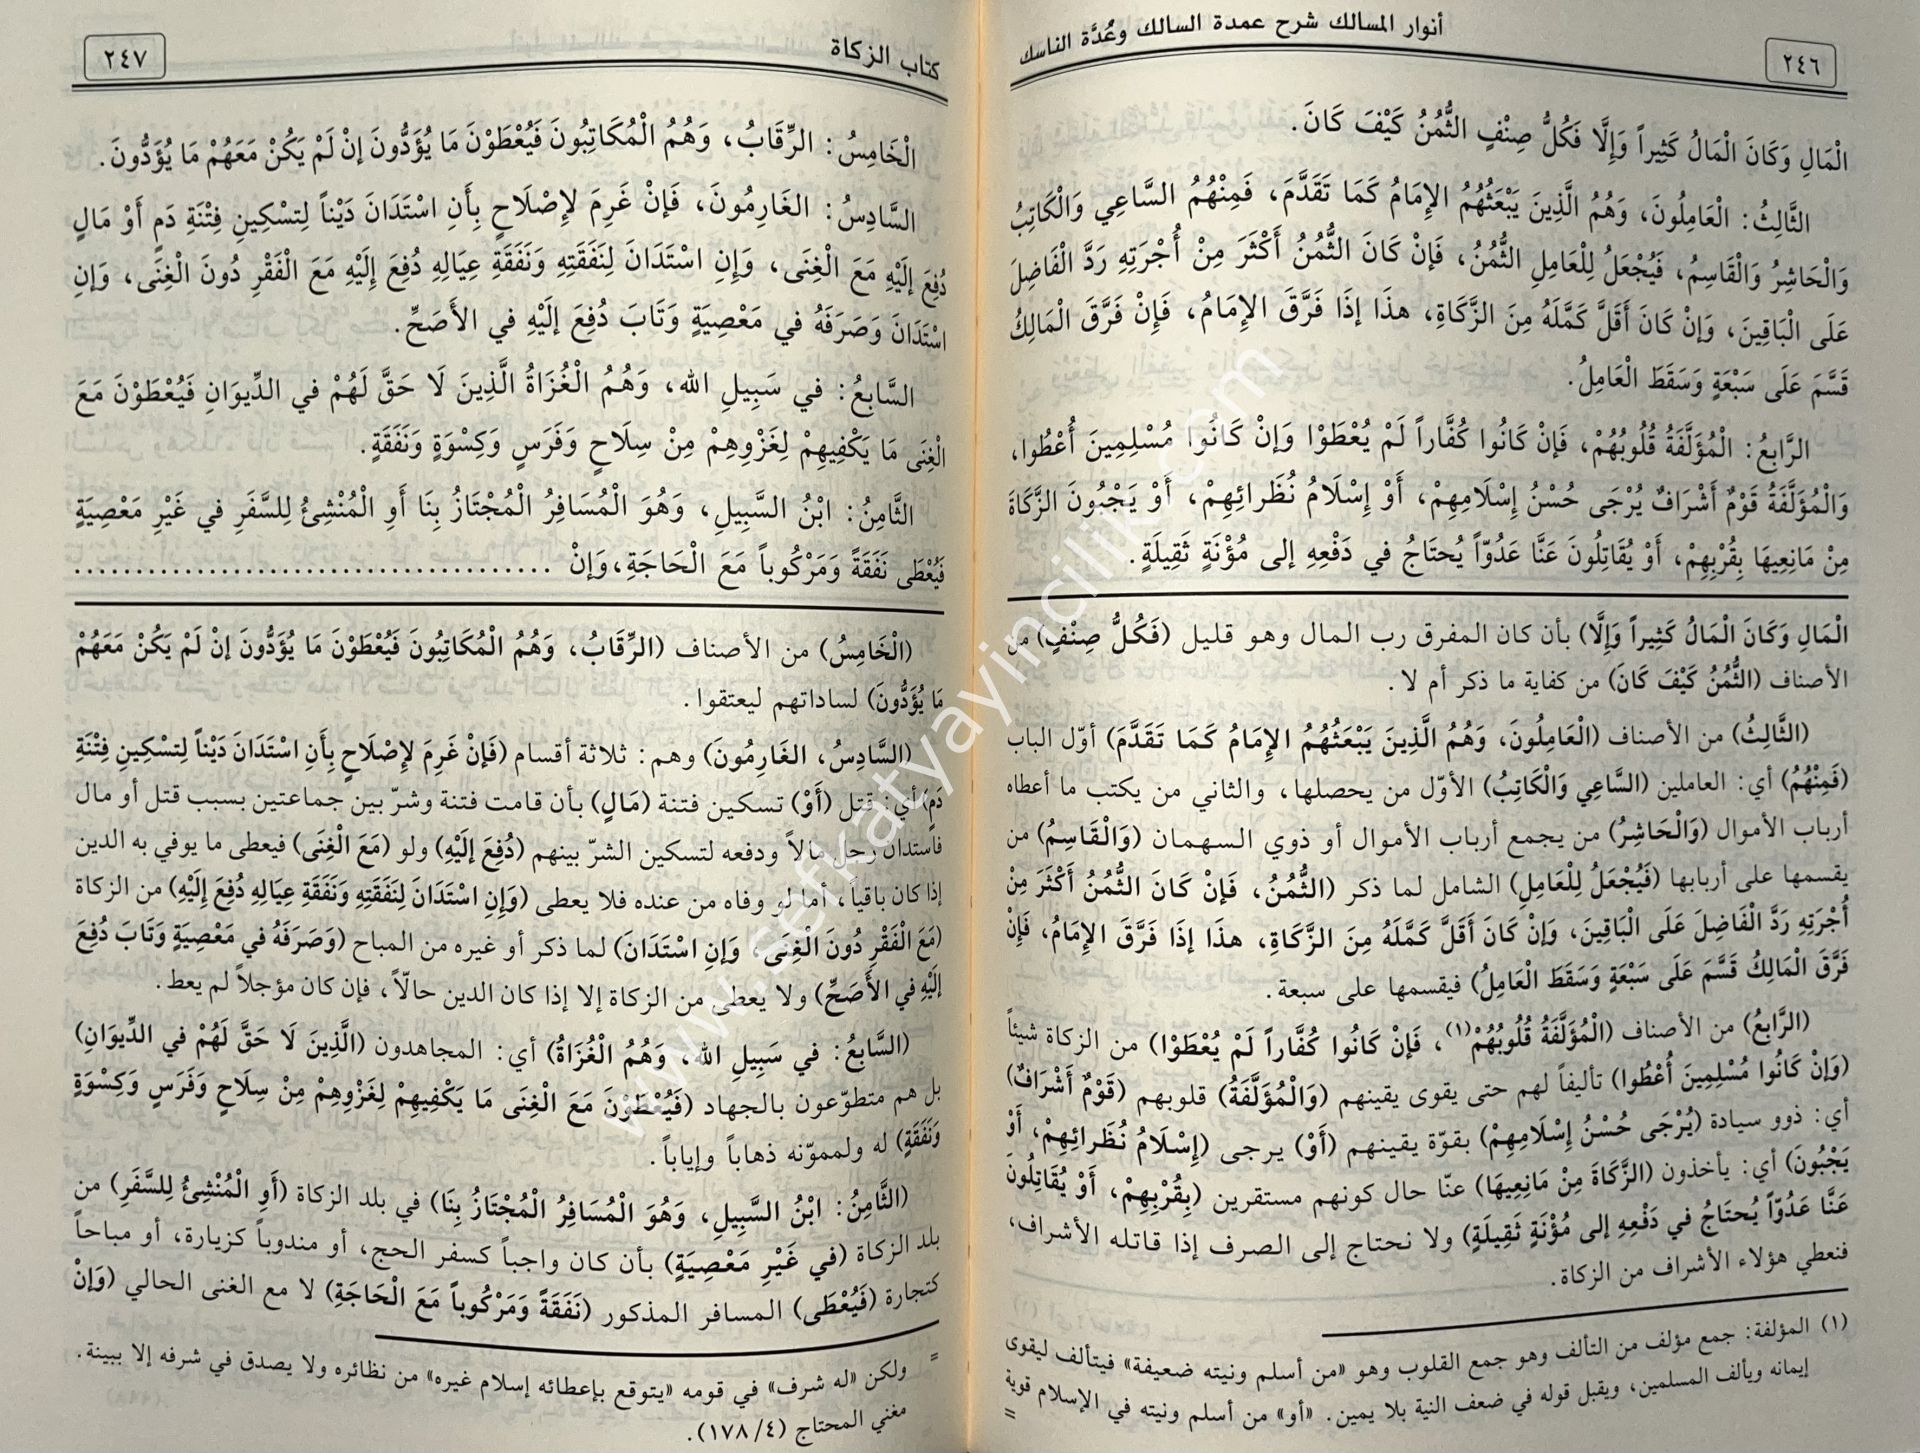 ٢٤٦
أنوار المسالك شرح عمدة السالك وعُدَّة الناسك
الْمَالِ وَكَانَ الْمَالُ كَثِيراً وَإِلَّا فَكُلُّ صِنْفٍ الثُّمُنُ كَيْفَ كَانَ.
الثَّالِثُ: الْعَامِلُونَ، وَهُمُ الَّذِينَ يَبْعَثُهُمُ الإِمَامُ كَمَا تَقَدَّمَ، فَمِنْهُمُ السَّاعِي وَالْكَاتِبُ
وَالْحَاشِرُ وَالْقَاسِمُ، فَيُجْعَلُ لِلْعَامِلِ الثُّمُنُ، فَإِنْ كَانَ الثُّمُنُ أَكْثَرَ مِنْ أُجْرَتِهِ رَدَّ الْفَاضِلَ
عَلَى الْبَاقِينَ، وَإِنْ كَانَ أَقَلَّ كَمَّلَهُ مِنَ الزَّكَاةِ، هذَا إذَا فَرَّقَ الإِمَامُ، فَإِنْ فَرَّقَ الْمَالِكُ
قَسَّمَ عَلَى سَبْعَةٍ وَسَقَطَ الْعَامِلُ.
الرَّابِعُ: الْمُؤَلَّفَةُ قُلُوبُهُمْ، فَإِنْ كَانُوا كُفَّاراً لَمْ يُعْطَوْا وَإِنْ كَانُوا مُسْلِمِينَ أُعْطُوا،
وَالْمُؤَلَّفَةُ قَوْمٌ أَشْرَافٌ يُرْجَى حُسْنُ إِسْلَامِهِمْ، أَوْ إِسْلَامُ نُظَرائِهِمْ، أَوْ يَجْبُونَ الزَّكَاةَ
مِنْ مَانِعِيهَا بِقُرْبِهِمْ، أَوْ يُقَاتِلُونَ عَنَّا عَدُوّاً يُحتَاجُ في دَفْعِهِ إلى مُؤْنَةٍ ثَقِيلَةٍ.
الْمَالِ وَكَانَ الْمَالُ كَثِيراً وَإِلَّا) بأن كان المفرق رب المال وهو قليل (فَكُلُّ صِنْفٍ) من
الأصناف (الثُّمُنُ كَيْفَ كَانَ) من كفاية ما ذكر أم لا.
(الثَّالِثُ) من الأصناف (الْعَامِلُونَ، وَهُمُ الَّذِينَ يَبْعَثُهُمُ الإِمَامُ كَمَا تَقَدَّمَ) أوّل الباب
(فَمِنْهُمُ) أي: العاملين (السَّاعِي وَالْكَاتِبُ) الأوّل من يحصلها، والثاني من يكتب ما أعطاه
أرباب الأموال (وَالْحَاشِرُ) من يجمع أرباب الأموال أو ذوي السهمان (وَالْقَاسِمُ) من
يقسمها على أربابها (فَيُجْعَلُ لِلْعَامِلِ) الشامل لما ذكر (الثُّمُنُ، فَإِنْ كَانَ الثُّمُنُ أَكْثَرَ مِنْ
أُجْرَتِهِ رَدَّ الْفَاضِلَ عَلَى الْبَاقِينَ، وَإِنْ كَانَ أَقَلَّ كَمَّلَهُ مِنَ الزَّكَاةِ، هذَا إذَا فَرَّقَ الإِمَامُ، فَإِنْ
فَرَّقَ الْمَالِكُ قَسَّمَ عَلَى سَبْعَةٍ وَسَقَطَ الْعَامِلُ) فيقسمها على سبعة.
(الرَّابِعُ) من الأصناف (الْمُؤَلَّفَةُ قُلُوبُهُمْ(١)، فَإِنْ كَانُوا كُفَّاراً لَمْ يُعْطَوْا) من الزكاة شيئاً
(وَإِنْ كَانُوا مُسْلِمِينَ أُعْطُوا) تأليفاً لهم حتى يقوى يقينهم (وَالْمُؤَلَّفَةُ) قلوبهم (قَوْمٌ أَشْرَافٌ)
أي: ذوو سيادة (يُرْجَى حُسْنُ إِسْلَامِهِمْ) بقوّة يقينهم (أَوْ) يرجى (إِسْلَامُ نُظَرائِهِمْ، أَوْ
يَجْبُونَ) أي: يأخذون (الزَّكَاةَ مِنْ مَانِعِيهَا) عنّا حال كونهم مستقرين (بِقُرْبِهِمْ، أَوْ يُقَاتِلُونَ
عَنَّا عَدُوّاً يُحتَاجُ في دَفْعِهِ إلى مُؤْنَةٍ ثَقِيلَةٍ) ولا نحتاج إلى الصرف إذا قاتله الأشراف،
فنعطي هؤلاء الأشراف من الزكاة.
(١) المؤلفة: جمع مؤلف من التألف وهو جمع القلوب وهو «من أسلم ونيته ضعيفة» فيتألف ليقوى
إيمانه ويألف المسلمين، ويقبل قوله في ضعف النية بلا يمين. «أو» من أسلم ونيته في الإسلام قوية
=
كتاب الزكاة
٢٤٧
الْخَامِسُ: الرِّقَابُ، وَهُمُ الْمُكَاتِبُونَ فَيُعْطَوْنَ مَا يُؤَدُّونَ إنْ لَمْ يَكُنْ مَعَهُمْ مَا يُؤَدُّونَ.
السَّادِسُ: الغَارِمُونَ، فَإِنْ غَرِمَ لإِصْلَاحٍ بِأَنِ اسْتَدَانَ دَيْناً لِتسْكِينِ فِتْنَةِ دَمٍ أَوْ مَالٍ
دُفِعَ إلَيْهِ مَعَ الْغِنَى، وَإِنِ اسْتَدَانَ لِنَفَقَتِهِ وَنَفَقَةِ عِيَالِهِ دُفِعَ إِلَيْهِ مَعَ الْفَقْرِ دُونَ الْغِنَى، وَإِنِ
اسْتَدَانَ وَصَرَفَهُ في مَعْصِيَةٍ وَتَابَ دُفِعَ إلَيْهِ في الأَصَحِّ.
السَّابِعُ: في سَبِيلِ الله، وَهُمُ الْغُزَاةُ الَّذِينَ لَا حَقَّ لَهُمْ في الدِّيوَانِ فَيُعْطَوْنَ مَعَ
الْغِنَى مَا يَكْفِيهِمْ لِغَزْوِهِمْ مِنْ سِلَاحٍ وَفَرَسٍ وَكِسْوَةٍ وَنَفَقَةٍ.
الثَّامِنُ: ابْنُ السَّبِيلِ، وَهُوَ الْمُسَافِرُ الْمُجْتَازُ بِنَا أَوِ الْمُنْشِئُ لِلسَّفَرِ في غَيْرِ مَعْصِيَةٍ
فَيُعْطَى نَفَقَةً وَمَرْكُوباً مَعَ الْحَاجَةِ،وَإِنْ ......................................
(الْخَامِسُ) من الأصناف (الرِّقَابُ، وَهُمُ الْمُكَاتِبُونَ فَيُعْطَوْنَ مَا يُؤَدُّونَ إنْ لَمْ يَكُنْ مَعَهُمْ
مَا يُؤَدُّونَ) لساداتهم ليعتقوا.
(السَّادِسُ، الغَارِمُونَ) وهم: ثلاثة أقسام (فَإِنْ غَرِمَ لإِصْلَاحٍ بِأَنِ اسْتَدَانَ دَيْناً لِتسْكِينِ فِتْنَةِ
دَمٍ) أي: قتل (أَوْ) تسكين فتنة (مَالٍ) بأن قامت فتنة وشرّ بين جماعتين بسبب قتل أو مال
فاستدان رجل مالاً ودفعه لتسكين الشرّ بينهم (دُفِعَ إلَيْهِ) ولو (مَعَ الْغِنَى) فيعطى ما يوفي به الدين
إذا كان باقياً، أما لو وفاه من عنده فلا يعطى (وَإِنِ اسْتَدَانَ لِنَفَقَتِهِ وَنَفَقَةِ عِيَالِهِ دُفِعَ إِلَيْهِ) من الزكاة
(مَعَ الْفَقْرِ دُونَ الْغِنَى، وَإِنِ اسْتَدَانَ) لما ذكر أو غيره من المباح (وَصَرَفَهُ في مَعْصِيَةٍ وَتَابَ دُفِعَ
إلَيْهِ في الأَصَحِّ) ولا يعطى من الزكاة إلا إذا كان الدين حالّاً، فإن كان مؤجلاً لم يعط.
(السَّابِعُ: في سَبِيلِ الله، وَهُمُ الْغُزَاةُ) أي: المجاهدون (الَّذِينَ لَا حَقَّ لَهُمْ في الدِّيوَانِ)
بل هم متطوّعون بالجهاد (فَيُعْطَوْنَ مَعَ الْغِنَى مَا يَكْفِيهِمْ لِغَزْوِهِمْ مِنْ سِلَاحٍ وَفَرَسٍ وَكِسْوَةٍ
وَنَفَقَةٍ) له ولمموّنه ذهاباً وإياباً.
(الثَّامِنُ: ابْنُ السَّبِيلِ، وَهُوَ الْمُسَافِرُ الْمُجْتَازُ بِنَا) في بلد الزكاة (أَوِ الْمُنْشِئُ لِلسَّفَرِ) من
بلد الزكاة (في غَيْرِ مَعْصِيَةٍ) بأن كان واجباً كسفر الحج، أو مندوباً كزيارة، أو مباحاً
كتجارة (فَيُعْطَى) المسافر المذكور (نَفَقَةً وَمَرْكُوباً مَعَ الْحَاجَةِ) لا مع الغنى الحالي (وَإِنْ
= ولكن «له شرف» في قومه «يتوقع بإعطائه إسلام غيره» من نظائره ولا يصدق في شرفه إلا ببينة.
مغني المحتاج (٤/ ١٧٨).
www.sefkatyayincilik.com